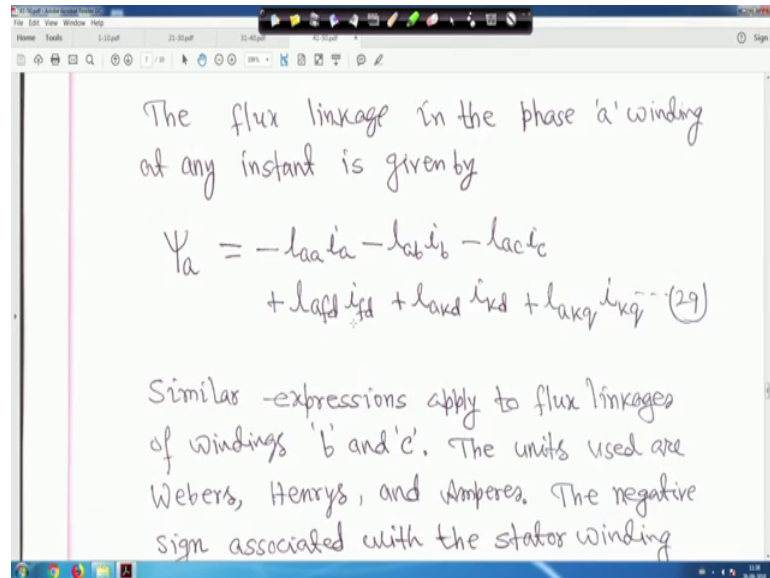 File Edit View Window Help
Home Tools 1-10.pdf 21-30.pdf 31-40.pdf 41-50.pdf Sign
The flux linkage in the phase 'a' winding
at any instant is given by
Ψa = -laa ia - lab ib - lac ic
+ lafd ifd + lakd ikd + lakq ikq --- (29)
Similar expressions apply to flux linkages
of windings 'b' and 'c'. The units used are
Webers, Henrys, and Amperes. The negative
sign associated with the stator winding